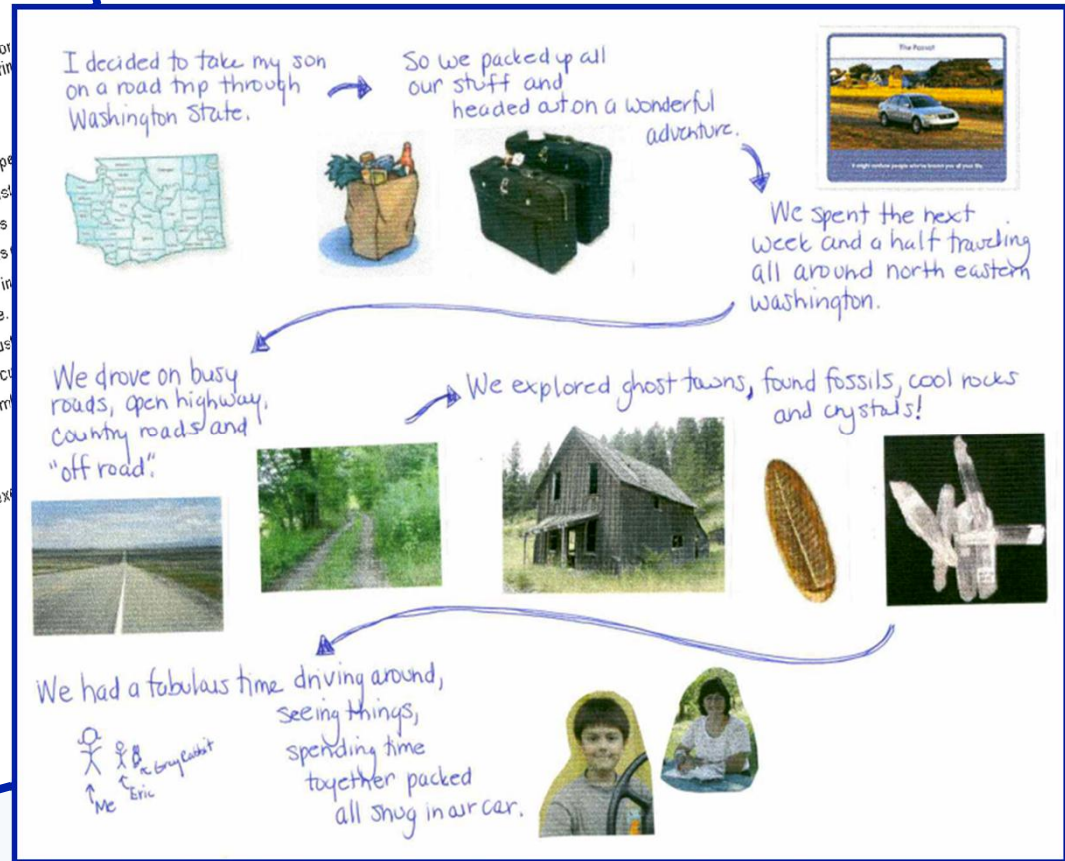 I decided to take my son
on a road trip through
Washington State.
So we packed up all
our stuff and
headed out on a wonderful
adventure.
The Passat
It might confuse people who've known you all your life.
We spent the next
week and a half traveling
all around north eastern
Washington.
We drove on busy
roads, open highway,
country roads and
"off road".
We explored ghost towns, found fossils, cool rocks
and crystals!
We had a fabulous time driving around,
seeing things,
spending time
together packed
all snug in our car.
Gray Rabbit
Eric
Me